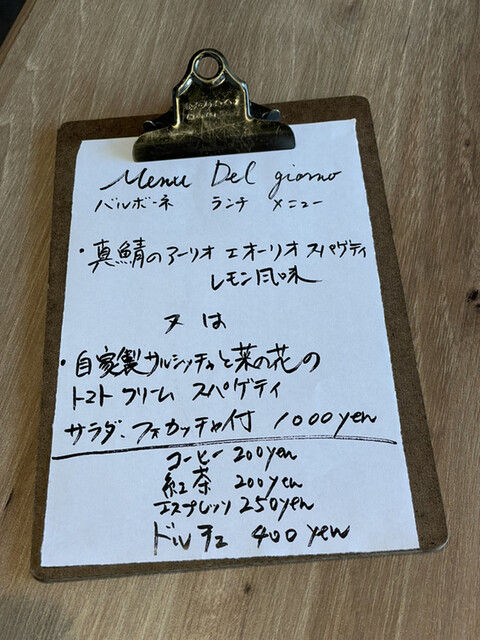 Menu Del giorno
バルボーネ ランチ メニュー
・真鯖のアーリオ エオーリオ スパゲティ
レモン風味
又は
・自家製サルシッチャと菜の花の
トマトクリーム スパゲティ
サラダ、フォカッチャ付 1000yen
コーヒー 200yen
紅茶 200yen
エスプレッソ 250yen
ドルチェ 400yen